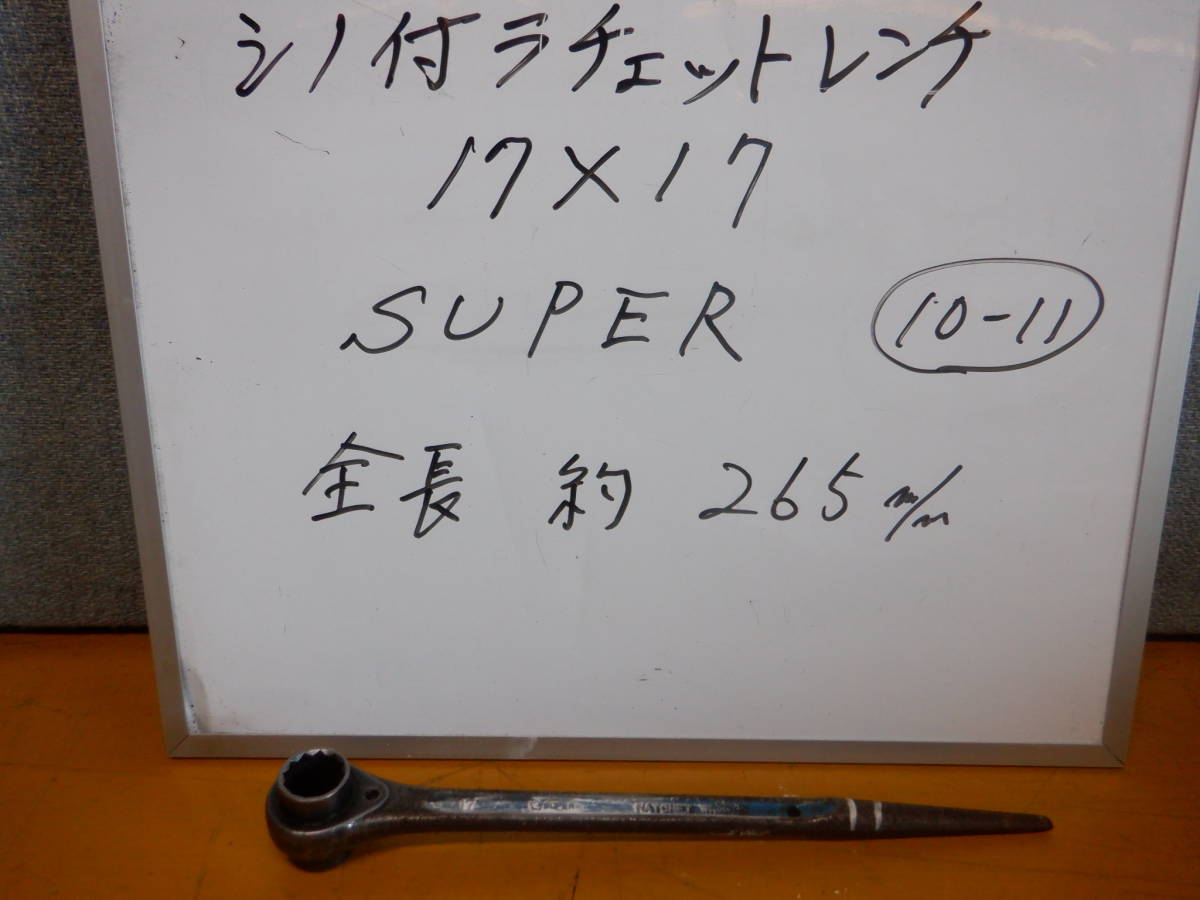 シノ付ラチェットレンチ
17×17
SUPER 10-11
全長 約 265 m/m
17 SUPER RATCHET